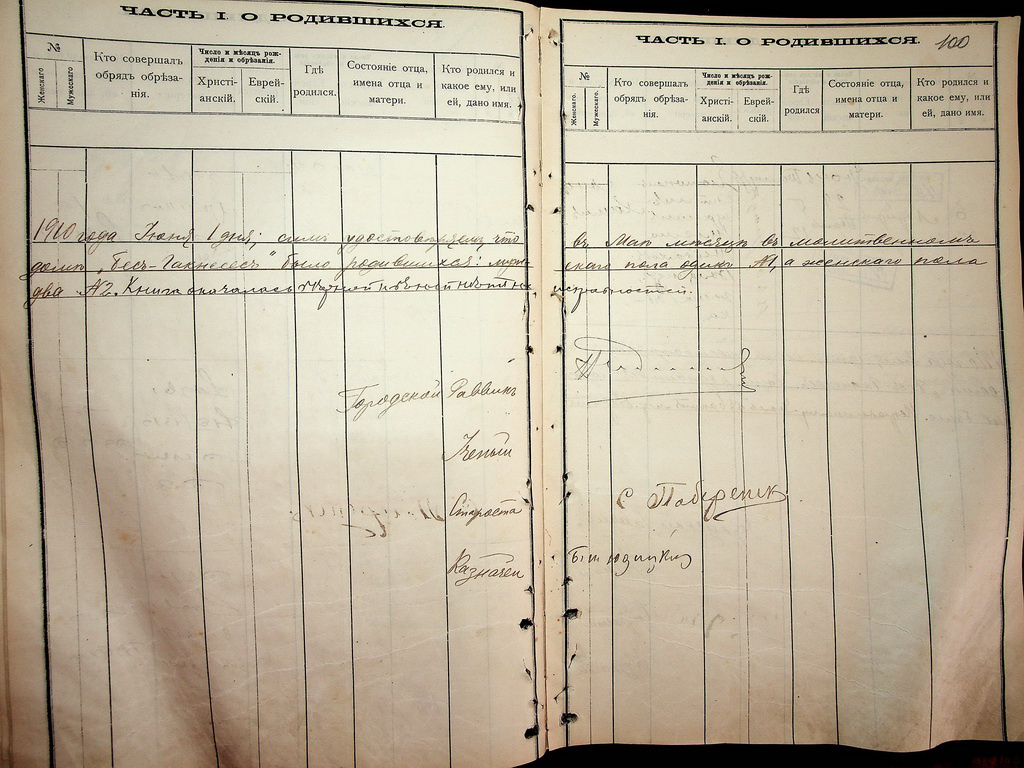 ЧАСТЬ I. О РОДИВШИХСЯ.
№
Женскаго.
Мужескаго
Кто совершалъ обрядъ обрѣзанія.
Число и мѣсяцъ рожденія и обрѣзанія.
Христіанскій.
Еврейскій.
Гдѣ родился.
Состояніе отца, имена отца и матери.
Кто родился и какое ему, или ей, дано имя.
ЧАСТЬ I. О РОДИВШИХСЯ.
100
№
Женскаго.
Мужескаго.
Кто совершалъ обрядъ обрѣзанія.
Число и мѣсяцъ рожденія и обрѣзанія.
Христіанскій.
Еврейскій.
Гдѣ родился
Состояніе отца, имена отца и матери.
Кто родился и какое ему, или ей, дано имя.
1910 года Іюня 1 дня; симъ удостовѣряемъ, что въ Маѣ мѣсяцѣ въ молитвенномъ
домѣ „Бесъ-Гакнесесъ" было родившихся: мужескаго пола одинъ №1, а женскаго пола
два №2. Книга оказалась исправностей.
Городской Раввинъ
Ученый
Староста
Казначей